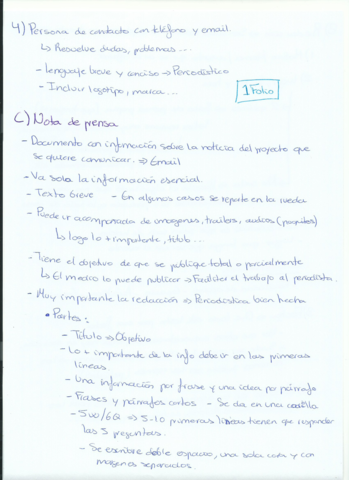 4) Persona de contacto con teléfono y email.
↳ Resuelve dudas, problemas...
- Lenguaje breve y conciso → Periodístico
- Incluir logotipo, marca...
1 Folio
C) Nota de prensa
- Documento con información sobre la noticia del proyecto que
se quiere comunicar. ⇒ Email
- Va solo la información esencial.
- Texto breve - En algunos casos se reparte en la rueda
- Puede ir acompañada de imágenes, trailers, audios (paquetes)
↳ logo lo + importante, título...
- Tiene el objetivo de que se publique total o parcialmente
↳ El medio lo puede publicar → Facilitar el trabajo al periodista.
- Muy importante la redacción → Periodística bien hecha
• Partes:
- Título → Objetivo
- Lo + importante de la info debe ir en las primeras
líneas.
- Una información por frase y una idea por párrafo
- Frases y párrafos cortos - Se da en una carilla.
- 5W/6Q ⇒ 5-10 primeras líneas tienen que responder
las 5 preguntas.
- Se escribe doble espacio, una sola cara y con
márgenes separados.